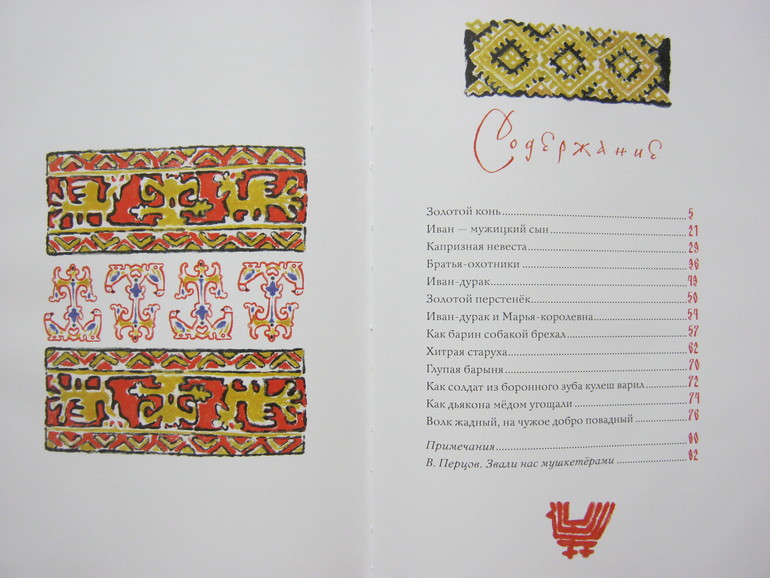 Содержание
Золотой конь 5
Иван — мужицкий сын 21
Капризная невеста 29
Братья-охотники 36
Иван-дурак 43
Золотой перстенёк 50
Иван-дурак и Марья-королевна 54
Как барин собакой брехал 57
Хитрая старуха 62
Глупая барыня 70
Как солдат из боронного зуба кулеш варил 72
Как дьякона мёдом угощали 74
Волк жадный, на чужое добро повадный 76
Примечания 80
В. Перцов. Звали нас мушкетёрами 82